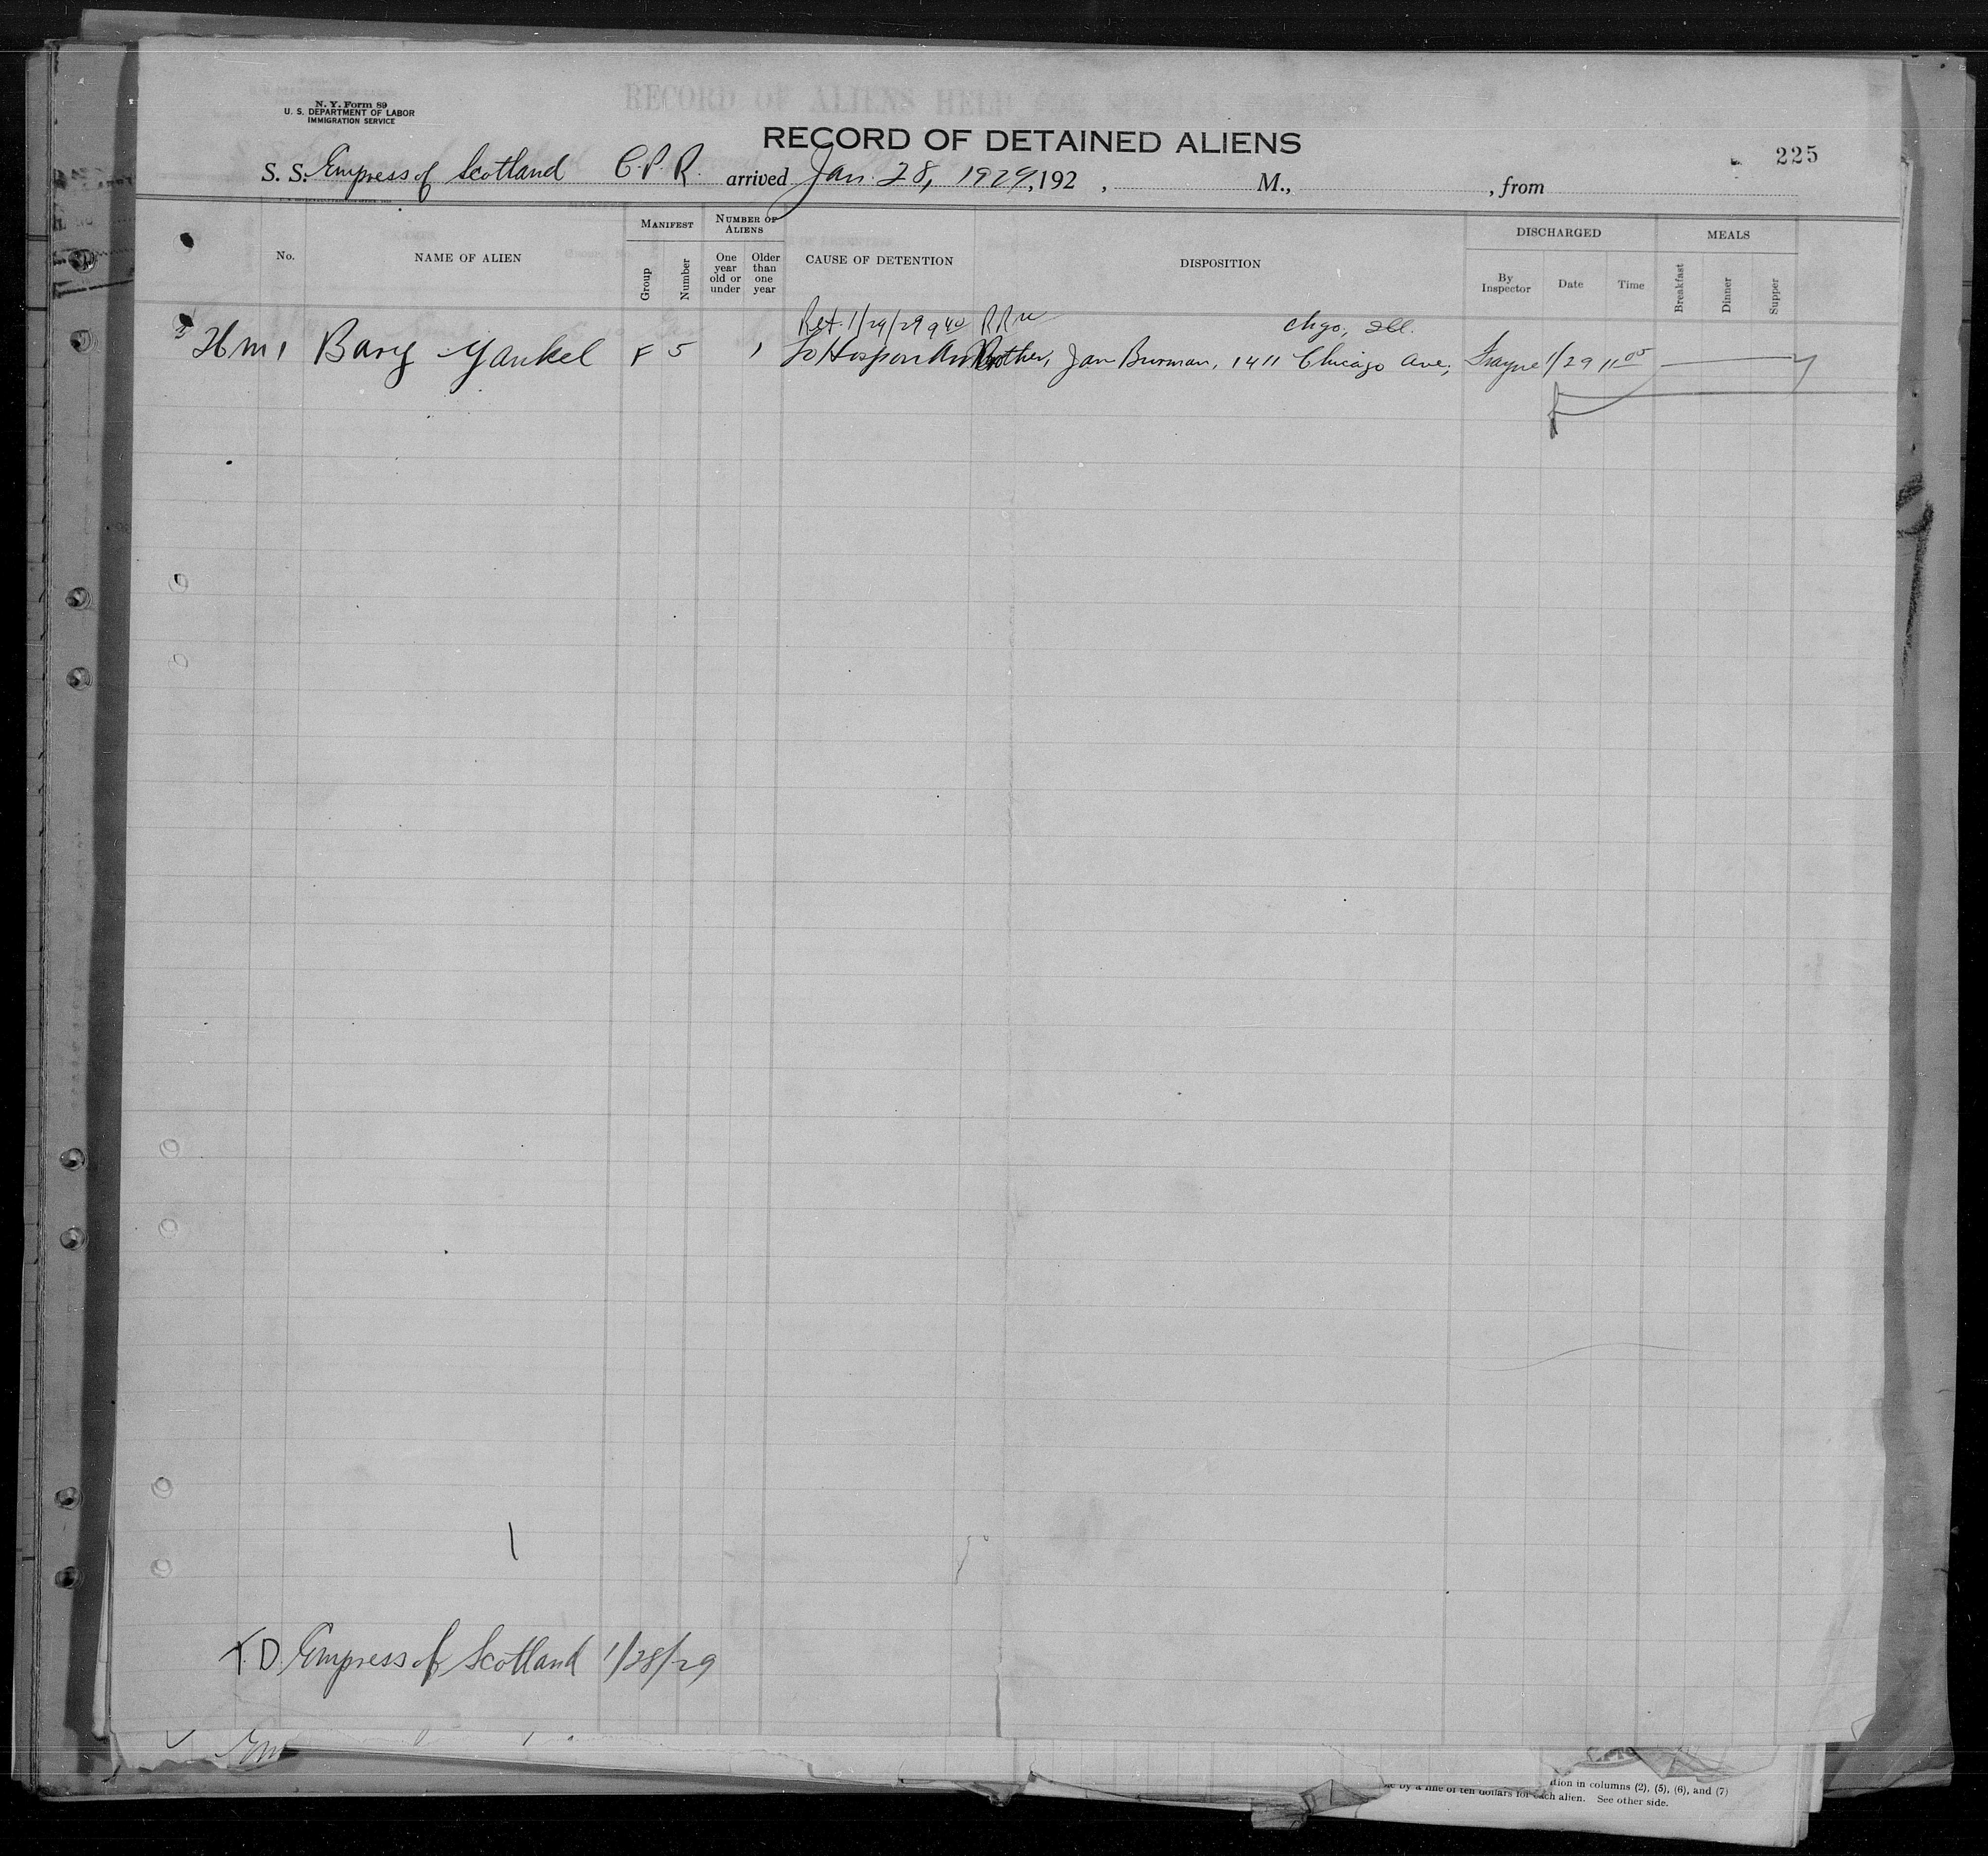 N. Y. Form 89
U. S. DEPARTMENT OF LABOR
IMMIGRATION SERVICE
RECORD OF DETAINED ALIENS
225
S. S. Empress of Scotland C.P.R. arrived Jan. 28, 1929, 192 , M., , from
No.
NAME OF ALIEN
MANIFEST
Group
Number
NUMBER OF ALIENS
One year old or under
Older than one year
CAUSE OF DETENTION
DISPOSITION
DISCHARGED
By Inspector
Date
Time
MEALS
Breakfast
Dinner
Supper
Ret. 1/29/29 9 40 Chgo., Ill.
Yankel F 5 1 To Hosp on Jan Burman, 1411 Chicago Ave, 1/29 11 05
1
Empress of Scotland 1/28/29
by a fine of ten dollars for each alien. See other side.
in columns (2), (5), (6), and (7)